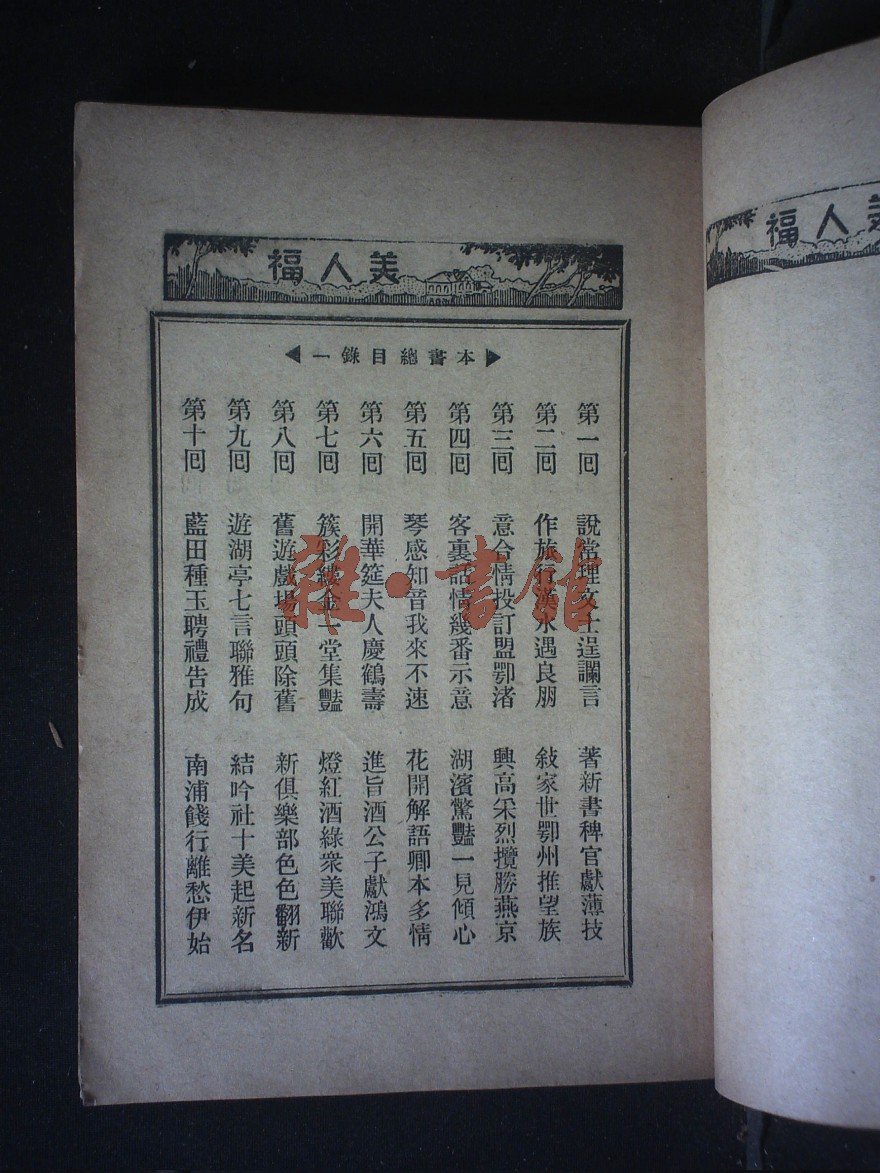 美人福
本書總目錄一
第一回 說常理文士逞讕言 著新書稗官獻薄技
第二回 作旅行漢水遇良朋 敍家世鄂州推望族
第三回 意合情投訂盟鄂渚 興高采烈攬勝燕京
第四回 客裏話情幾番示意 湖濱驚豔一見傾心
第五回 琴感知音我來不速 花開解語卿本多情
第六回 開華筵夫人慶鶴壽 進旨酒公子獻鴻文
第七回 簇彩縷金一堂集豔 燈紅酒綠衆美聯歡
第八回 舊遊戲場頭頭除舊 新俱樂部色色翻新
第九回 遊湖亭七言聯雅句 結吟社十美起新名
第十回 藍田種玉聘禮告成 南浦餞行離愁伊始
美人福
雜·書館